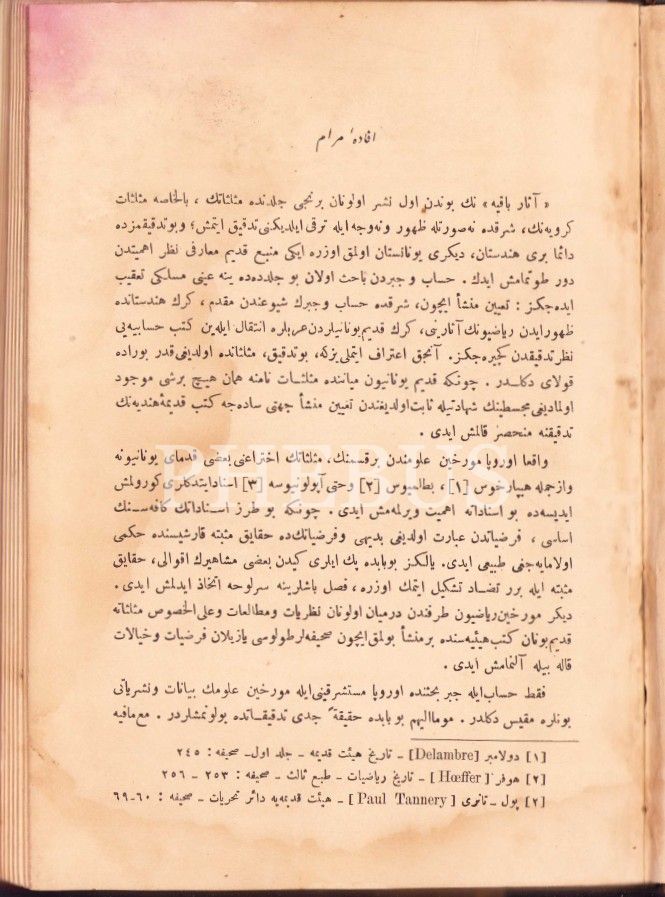 افادهٔ مرام
« آثار باقیه » نك بوندن اول نشر اولونان برنجی جلدنده مثلثاتك ، بالخاصه مثلثات
كرویه‌نك، شرقده نه‌صورتله ظهور ونه‌وجه ایله ترقی ایلدیكنی تدقیق ایتمش؛ وبوتدقیقمزده
دائما بری هندستان، دیكری یونانستان اولمق اوزره ایكی منبع قدیم معارفی نظر اهمیتدن
دور طوتمامش ایدك . حساب وجبردن باحث اولان بو جلدده‌ده ینه عینی مسلكی تعقیب
ایده‌جكز : تعیین منشأ ایچون، شرقده حساب وجبرك شیوعندن مقدم ، كرك هندستانده
ظهورایدن ریاضیونك آثارینی، كرك قدیم‌یونانیلردن‌عربلره انتقال ایله‌ین كتب حسابیه‌یی
نظرتدقیقدن كچیره‌جكز. آنجق اعتراف ایتملی‌یزكه، بوتدقیق، مثلثاتده اولدیغی‌قدر بوراده
قولای دكلـدر . چونكه قدیم یونانیون میاننده مثلثـات نامنه همان هیـچ برشی موجود
اولمادیغی‌مجسطینك شهادتیله ثابت‌اولدیغندن تعیین منشأ جهتی ساده‌جه كتب قدیمهٔ‌هندیه‌نك
تدقیقنه منحصر قالمش ایدی .
واقعا اوروپا مورخین علومندن برقسمنك، مثلثاتك اختراعنی بعضی قدمای یونانیونه
وازجمله هیپارخوس [١]، بطالمیوس [٢] وحتی آپولونیوسه [٣] اسنادایتدكلری‌كورولمش
ایدیسه‌ده بو اسناداته اهمیت ویرله‌مش ایدی. چونكه بو طرز اسـناداتك كافه‌سـنك
اساسی ، فرضیاتدن عبارت اولدیغی بدیهی وفرضیاتك‌ده حقایق مثبته قارشیسنده حكمی
اولامایه‌جغی طبیعی ایدی. یالكز بوبابده پك ایلری كیدن بعضی مشاهیرك اقوالی، حقایق
مثبته ایله برر تضـاد تشكیل ایتمك اوزره، فصل باشلرینه سرلوحه اتخاذ ایدلمش ایدی .
دیكر مورخین‌ریاضیون طرفندن درمیان اولونان نظریات ومطالعات وعلی‌الخصوص مثلثاته
قدیم‌یونان كتب‌هیئیه‌سنده برمنشأ بولمق‌ایچون صحیفه‌لرطولوسی یازیلان فرضیات وخیالات
قاله بیله آلنمامش ایدی .
فقط حساب‌ایله جبر بحثنده اوروپا مستشرقینی‌ایله مورخین علومك بیانات ونشریاتی
بونلره مقیس دكلدر . مومالیهم بوبابده حقیقةً جدی تدقیقـاتده بولونمشلردر . مع‌مافیه
[١] دولامبر [Delambre] ـ تاریخ هیئت قدیمه ـ جلد اول‌ـ صحیفه : ٢٤٥
[٢] هوفر [Hœffer] ـ تاریخ ریاضیات ـ طبع ثالث ـ صحیفه : ٢٥٣ ـ ٢٥٦
[٢] پول ـ تانری [Paul Tannery] ـ هیئت قدیمه‌یه دائر تحریات ـ صحیفه : ٦٠ـ٦٩